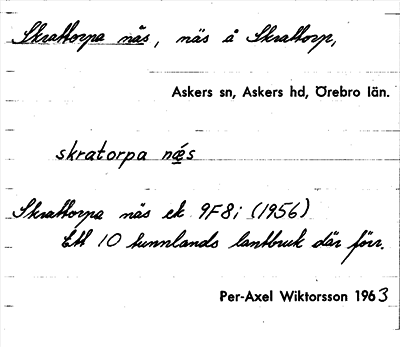 Skrattorpa näs, näs å Skrattorp,
Askers sn, Askers hd, Örebro län.
skratorpa næ̀s
Skrattorpa näs ek 9F8i (1956)
Ett 10 tunnlands lantbruk där förr.
Per-Axel Wiktorsson 1963